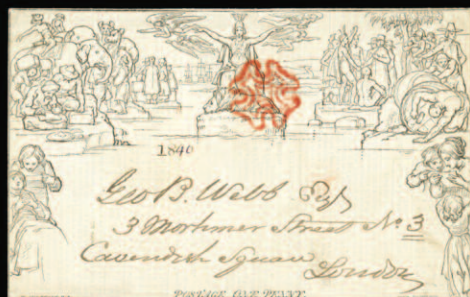 1840
Geo B. Webb Esq
3 Mortimer Street No 3
Cavendish Square
London
POSTAGE ONE PENNY.